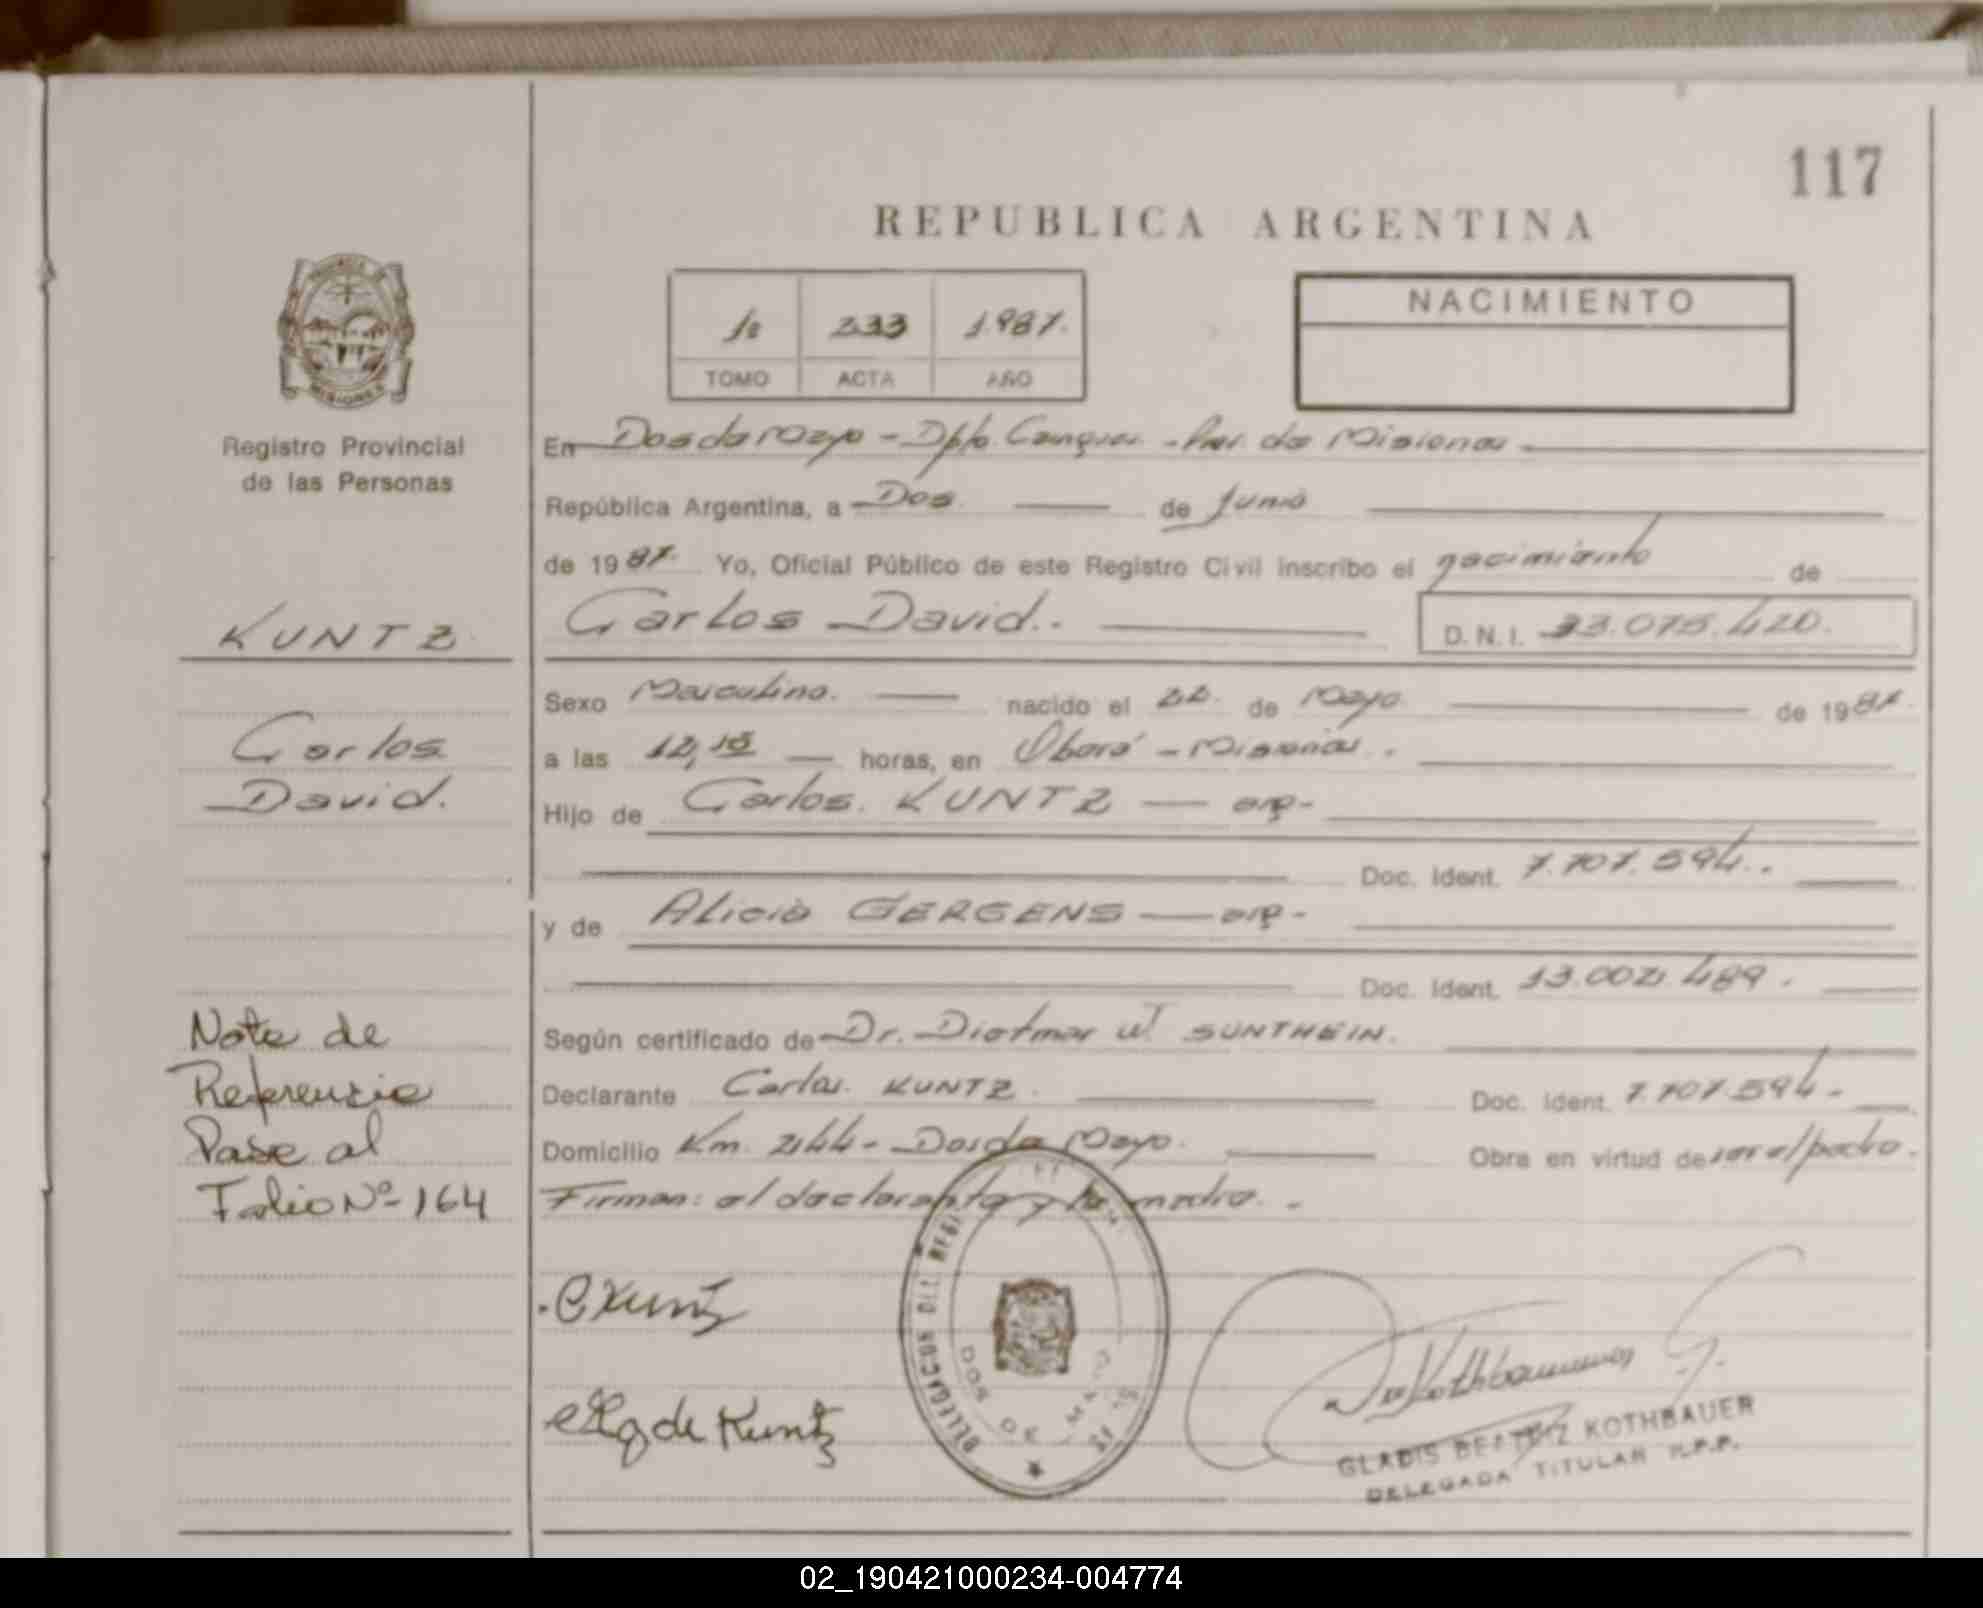 117
REPUBLICA ARGENTINA
1º 233 1.987.
TOMO ACTA AÑO
NACIMIENTO
Registro Provincial
de las Personas
En Dos de Mayo - Dpto. Cainguas - Prov. de Misiones
República Argentina, a Dos de Junio
de 1987. Yo, Oficial Público de este Registro Civil inscribo el nacimiento de
KUNTZ
Carlos David.
D.N.I. 33.075.420.
Sexo Masculino. nacido el 22. de Mayo. de 1987.
Carlos
a las 12,15 horas, en Oberá - Misiones.
David.
Hijo de Carlos. KUNTZ arg-
Doc. Ident. 7.707.594.
y de Alicia GERGENS arg-
Doc. Ident. 13.002.489.
Según certificado de Dr. Dietmar W. SUNTHEIN.
Declarante Carlos. KUNTZ. Doc. Ident. 7.707.594.
Domicilio Km. 244 - Dos de Mayo. Obra en virtud de ser el padre.
Firman: el declarante y la madre.
Nota de
Referencia
Pase al
Folio Nº 164
C Kuntz
de Kuntz
DELEGACION DEL REGI
DOS DE MAYO
GLADIS BEATRIZ KOTHBAUER
DELEGADA TITULAR R.P.P.
02_190421000234-004774